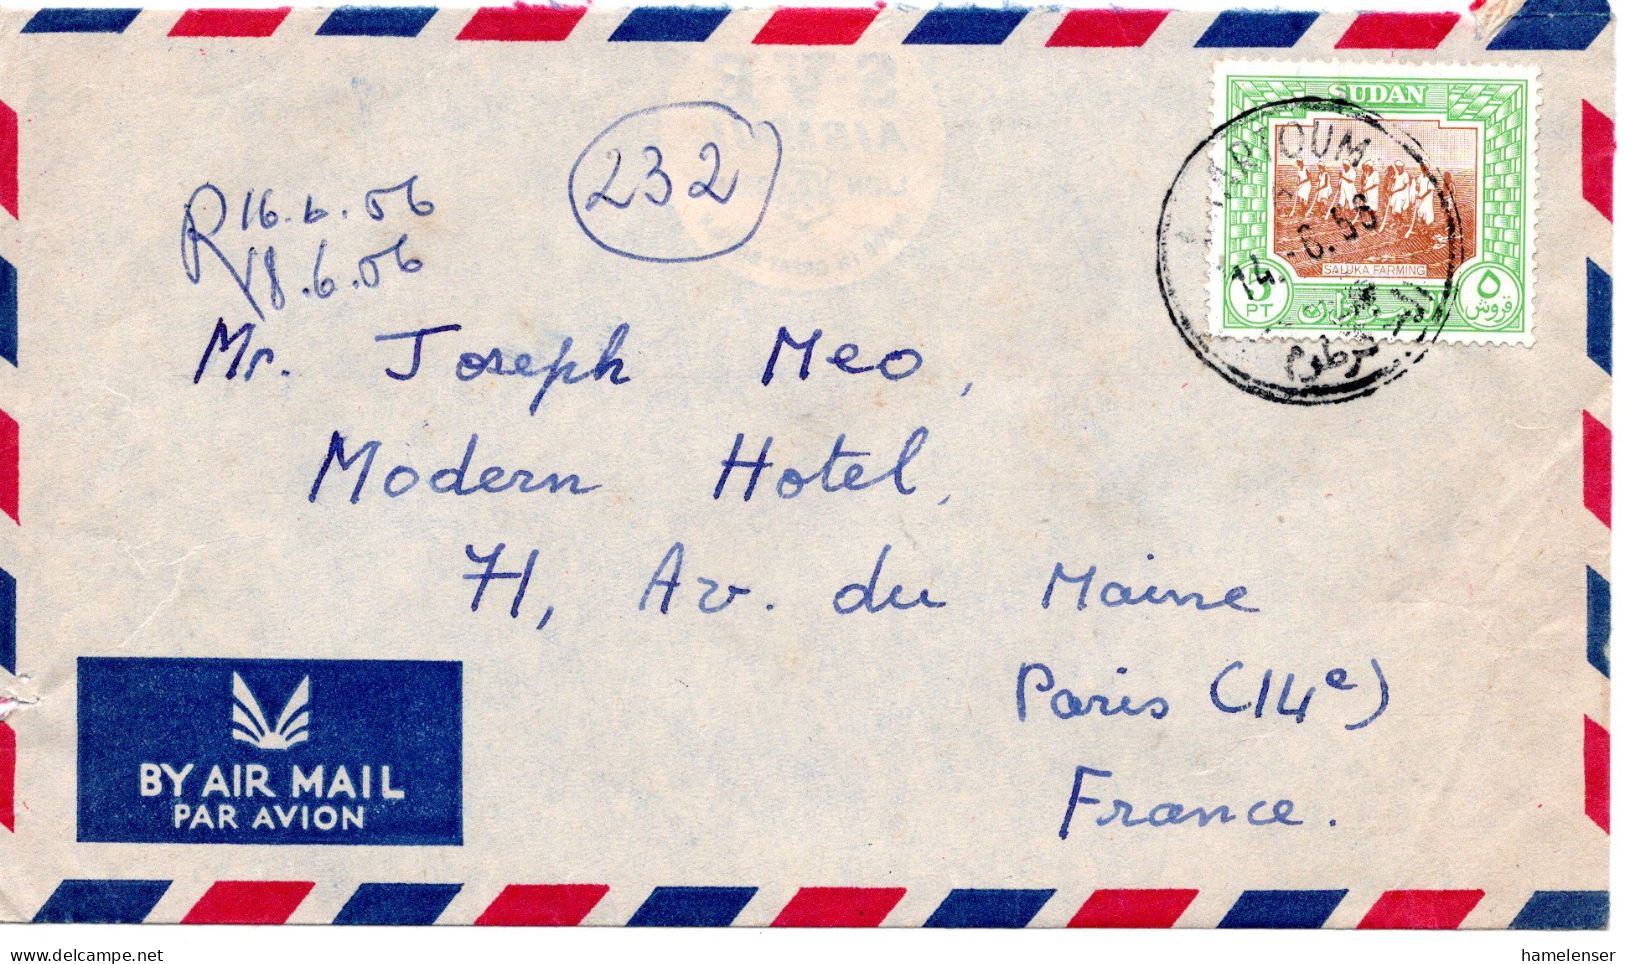 SUDAN
KHARTOUM
14. 6. 56
SALUKA FARMING
5
PT
٥
قروش
232
R 16.6.56
18.6.56
Mr. Joseph Meo,
Modern Hotel,
71, Av. du Maine
Paris (14e)
France.
BY AIR MAIL
PAR AVION
hamelenser